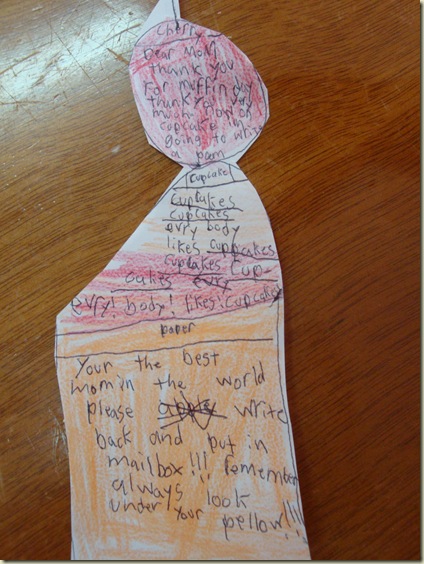 cherry
Dear Mom
thank you
For muffin day
thank you very
much now on
cupcake im
going to write
a pam
cupcake
cupcakes
cupcakes
evry body
likes cuppcakes
cupcakes cup-
cakes evry
evry! body! likes! cupcakes
paper
Your the best
mom in the world
please write
back and put in
mailbox!!! remember
always look
under your pellow!!!